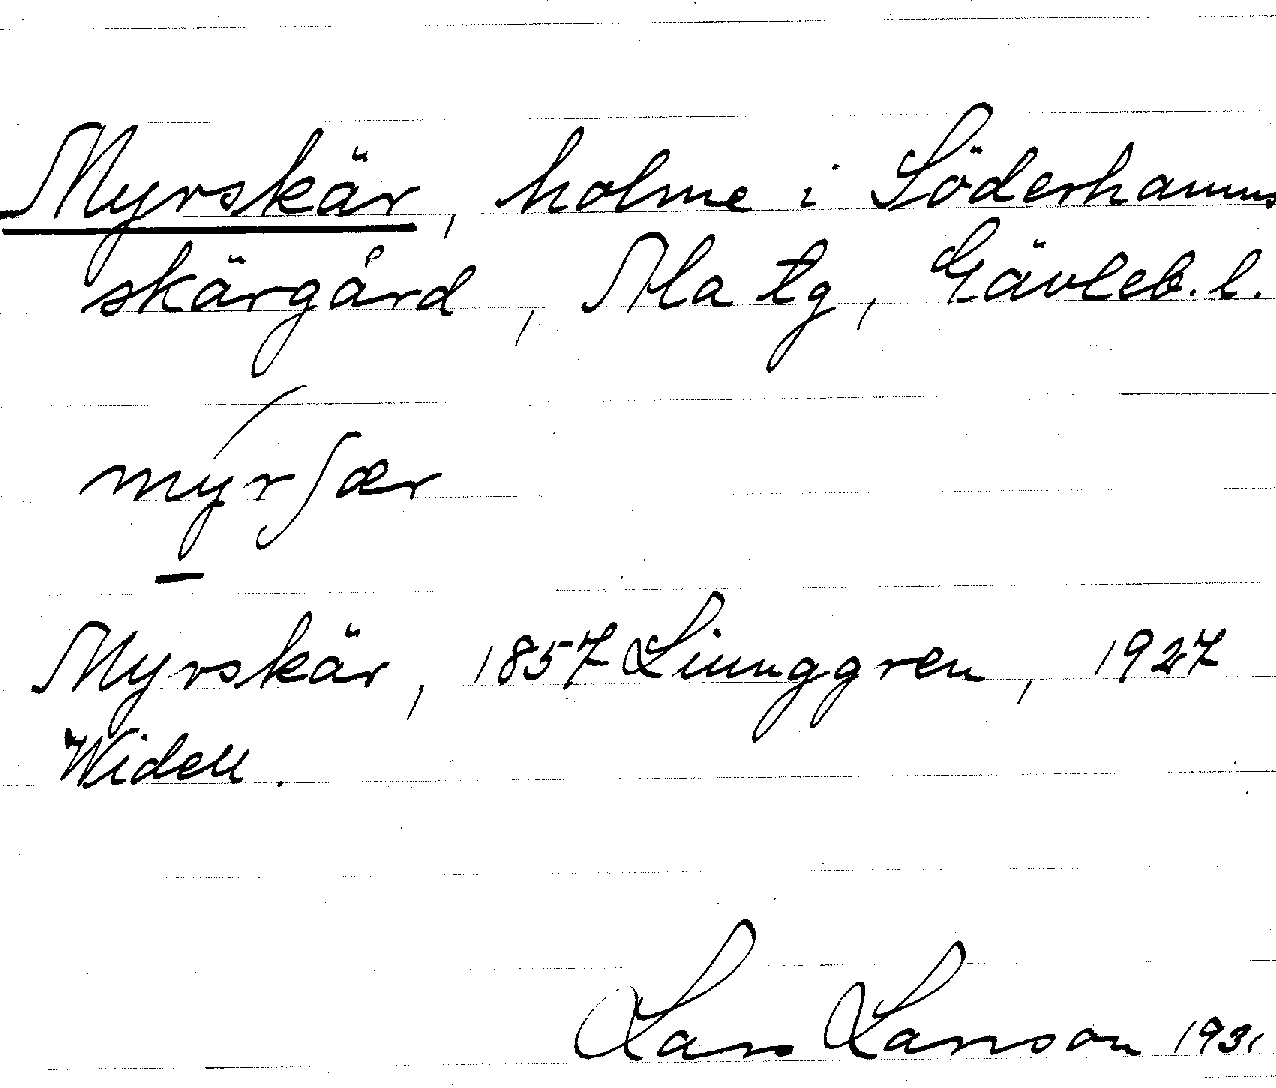 Myrskär, holme i Söderhamns
skärgård, Ala tg, Gävleb. l.
myrʃær
Myrskär, 1857 Ljunggren, 1927
Widell.
Lars Larsson 1931